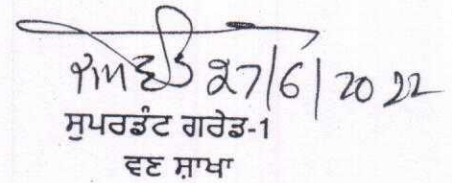 27/6/2022
ਸੁਪਰਡੰਟ ਗਰੇਡ-1
ਵਣ ਸ਼ਾਖਾ